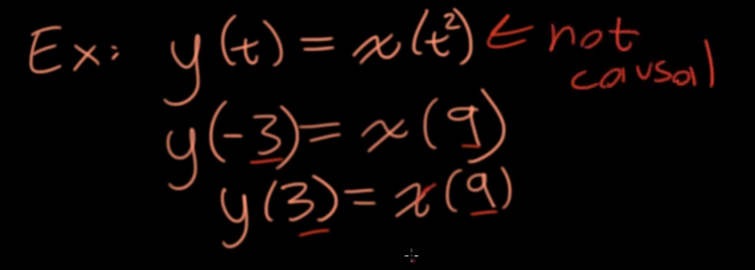 Ex: y(t) = x(t²) ← not causal
y(-3) = x(9)
y(3) = x(9)